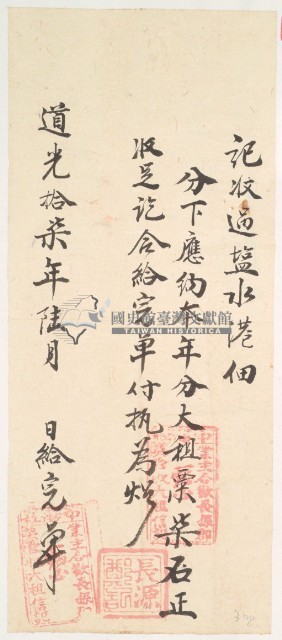 記收過塩水港佃
分下應納本年分大租粟柒石正
收足訖合給完單付執為炤
道光拾柒年陸月 日給完單
國史館臺灣文獻館
TAIWAN HISTORICA
長源